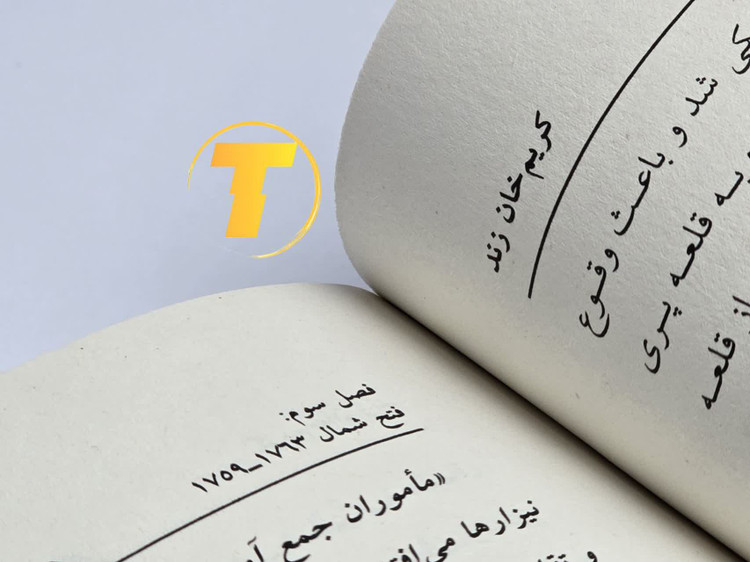 T
کریم‌خان زند
کی شد و باعث وقوع
به قلعه پری
از قلعه
فصل سوم:
فتح شمال ۱۷۶۳ـ۱۷۵۹
«مأموران جمع آ
نیزارها می‌افت
و تقا